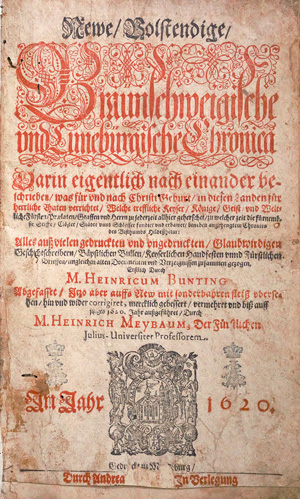 Newe/Volstendige/
Braunschweigische
vnd Luneburgische Chronica
Darin eigentlich nach einander be-
schrieben/was für vnd nach Christi Geburt/in diesen Landen für
herrliche Thaten verrichtet/Welche treffliche Keyser/Könige/Geist- vnd Welt-
liche Fürsten/Praelaten/Graffen vnd Herrn zu jederzeit allhier geherrschet/zu welcher zeit die
Stiffte/Clöster/Städte vnnd Schlösser fundirt vnd erbawet
der Bischhumb Hildesheim:
Alles auß vielen gedruckten vnd vngedruckten/Glaubwirdigen
Geschichtschreibern/Bäpstlichen Bullen/Keyserlichen Handfesten vnnd Fürstlichen
Brieffen/ alten Documenten vnd Verzeignissen zusammen gezogen,
Erstlich Durch
M. HEINRICUM BUNTING
Abgefasset/Itzo aber auffs New mit sonderbahrem fleiß vberse-
hen/hin vnd wider corrigiret/mercklich gebessert/vermehret vnd biß auff
1620. Jahr außgeführet/Durch
M. HEINRICH MEYBAUM, Der Fürstlichen
Julius-Universitet Professorem.
Im Jahr 1620.
Gedruckt M burg/
Durch Andrea In Verlegung